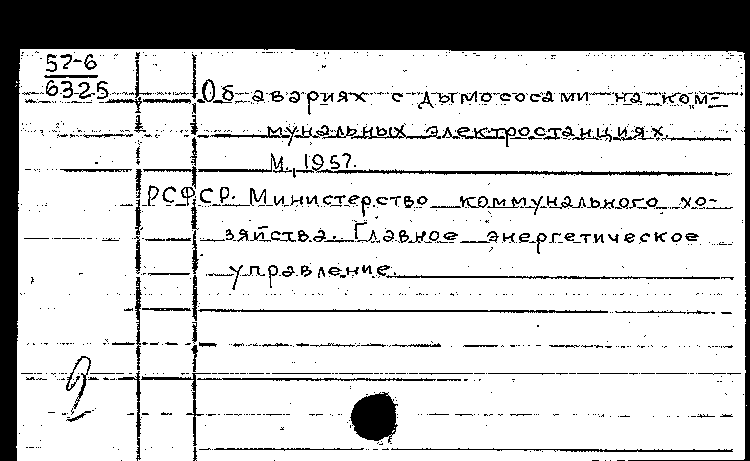 57-6
6325
Об авариях с дымососами на ком-
мунальных электростанциях.
М., 1957.
РСФСР. Министерство коммунального хо-
зяйства. Главное энергетическое
управление.